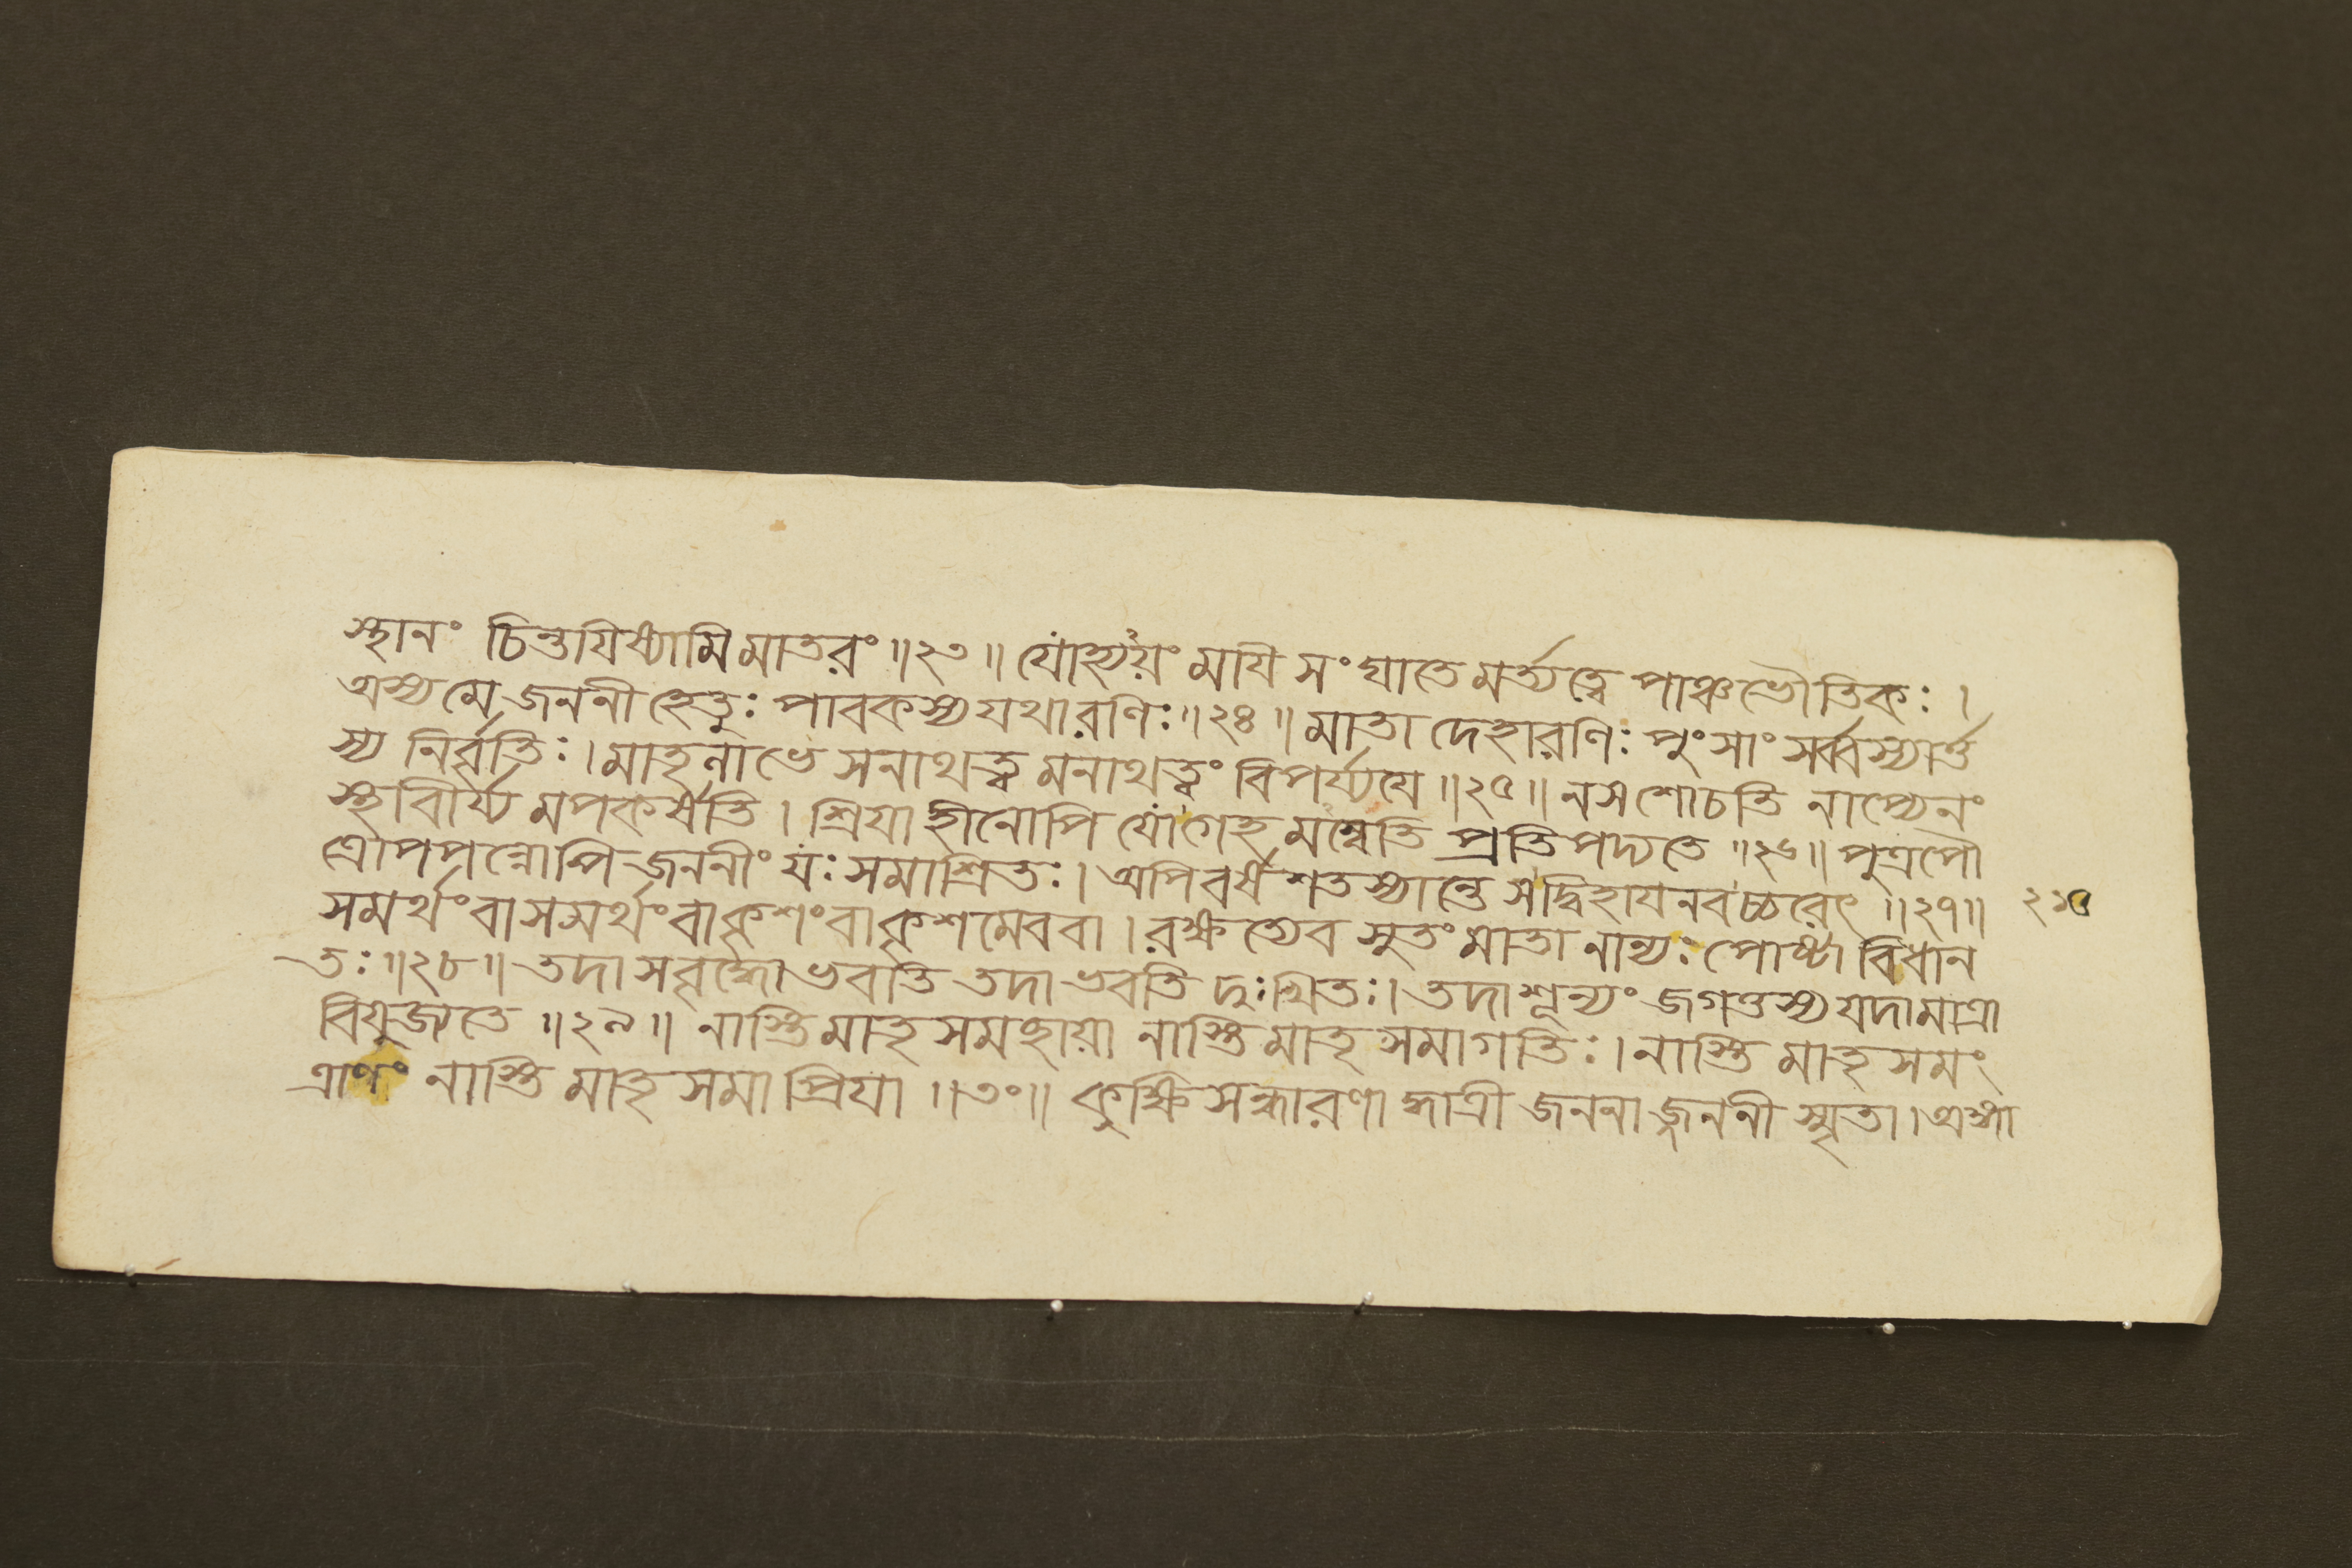 স্থানং চিন্তযিষ্যামি মাতরং ॥২৩॥ যোহ্যযং মাযি সংঘাতে মর্ত্ত্যত্বে পাঞ্চভৌতিকঃ ।
অস্য মে জননী হেতুঃ পাবকস্য যথারণিঃ ॥২৪॥ মাতা দেহারণিঃ পুংসাং সর্ব্বস্যার্ত্ত
স্য নির্বৃতিঃ । মাতৃনাভে সনাথত্ব মনাথত্বং বিপর্য্যযে ॥২৫॥ ন স শোচতি নাপ্যেনং
স্থাবির্য্য মপকর্ষতি । শ্রিযা হীনোপি যোগেহ মম্বেতি প্রতিপদ্যতে ॥২৬॥ পুত্রপৌ
ত্রোপপন্নোপি জননীং যঃ সমাশ্রিতঃ । অপি বর্ষশতস্যান্তে স দ্বিহাযনবচ্চরেৎ ॥২৭॥
সমর্থং বাসমর্থং বা কৃশং বাকৃশমেব বা । রক্ষত্যেব সুতং মাতা নান্যঃ পোষ্টা বিধান
তঃ ॥২৮॥ তদা স বৃদ্ধো ভবতি তদা ভবতি দুঃখিতঃ । তদা শূন্যং জগত্তস্য যদা মাত্রা
বিযুজ্যতে ॥২৯॥ নাস্তি মাতৃ সমচ্ছাযা নাস্তি মাতৃ সমাগতিঃ । নাস্তি মাতৃ সমং
ত্রাণং নাস্তি মাতৃ সমা প্রিযা ॥৩০॥ কুক্ষি সন্ধারণা দ্ধাত্রী জননাজ্জননী স্মৃতা । অঙ্গা